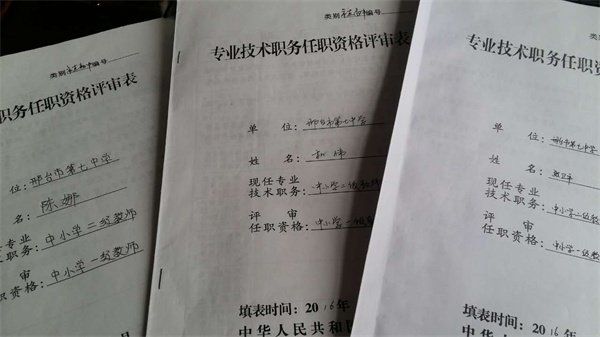 类别 编号
职务任职资格评审表
位：邢台市第七中学
名：陈娜
专业
职务：中小学二级教师
审
资格：中小学一级教师
类别 编号
专业技术职务任职资格评审表
单 位：邢台市第七中学
姓 名：
现任专业
技术职务：中小学二级教师
评 审
任职资格：中小学一级
填表时间：2016年
中华人民共和
类别 编号
专业技术职务任职资
单 位：邢台市第七中学
姓 名：
现任专业
技术职务：中小学二级教师
评 审
任职资格：中小学一级教师
填表时间：2016年
中华人民共